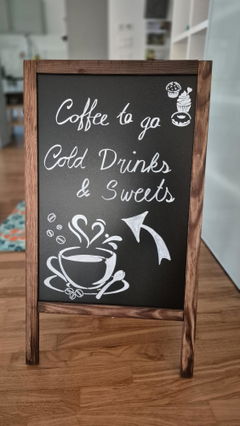 Coffee to go
Cold Drinks
& Sweets